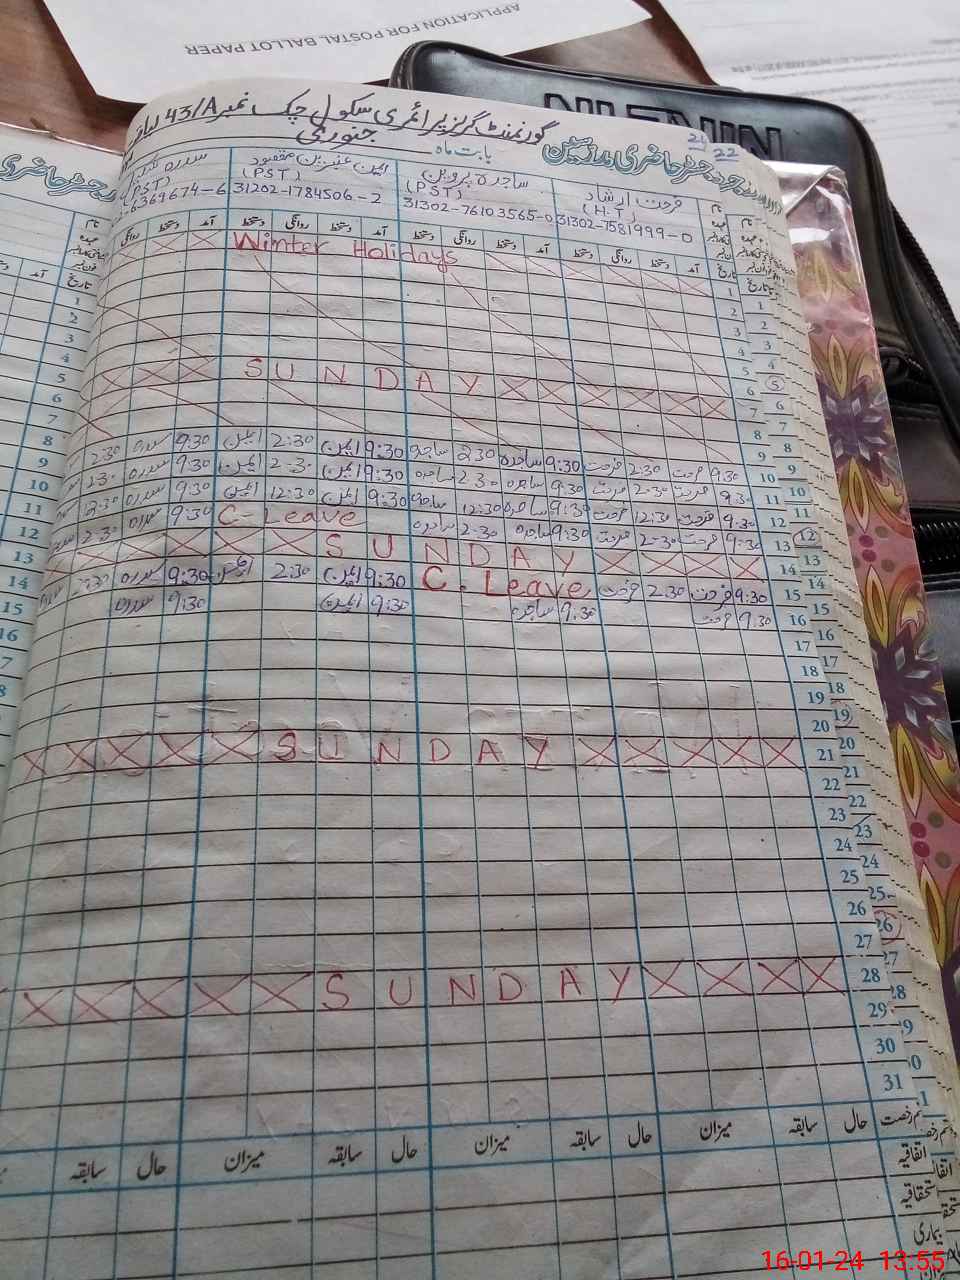 APPLICATION FOR POSTAL BALLOT PAPER
گورنمنٹ گرلز پرائمری سکول چک نمبر 43/A
بابت ماہ جنوری
21 22
رجسٹر حاضری مدرسین
فرحت ارشاد ساجدہ پروین ایمن عنبرین مقصود سدرہ
(H.T) (PST) (PST) (PST)
31302-7581999-0 31302-76103565-0 31202-1784506-2 6369674-6
تاریخ آمد دستخط روانگی دستخط آمد دستخط روانگی دستخط آمد دستخط روانگی دستخط آمد روانگی
1 Winter Holidays
2
3
4
5
6
7 SUNDAY
8
9
10 9:30 فرحت 2:30 فرحت 9:30 ساجدہ 2:30 ساجدہ 9:30 ایمن 2:30 ایمن 9:30 سدرہ 2:30
11 9:30 فرحت 2:30 فرحت 9:30 ساجدہ 2:30 ساجدہ 9:30 ایمن 2:30 ایمن 9:30 سدرہ 2:30
12 9:30 فرحت 12:30 فرحت 9:30 ساجدہ 12:30 ساجدہ 9:30 ایمن 12:30 ایمن 9:30 سدرہ 12:30
13 9:30 فرحت 2:30 فرحت 9:30 ساجدہ 2:30 ساجدہ C-Leave 9:30 سدرہ 2:30
14 SUNDAY
15 9:30 فرحت 2:30 فرحت C. Leave 9:30 ایمن 2:30 ایمن 9:30 سدرہ 2:30
16 9:30 فرحت 9:30 ساجدہ 9:30 ایمن 9:30 سدرہ
17
18
19
20
21 SUNDAY
22
23
24
25
26
27
28 SUNDAY
29
30
31
حال سابقہ میزان حال سابقہ میزان حال سابقہ میزان حال سابقہ
اتفاقیہ
استحقاقیہ
بیماری
16-01-24 13:55